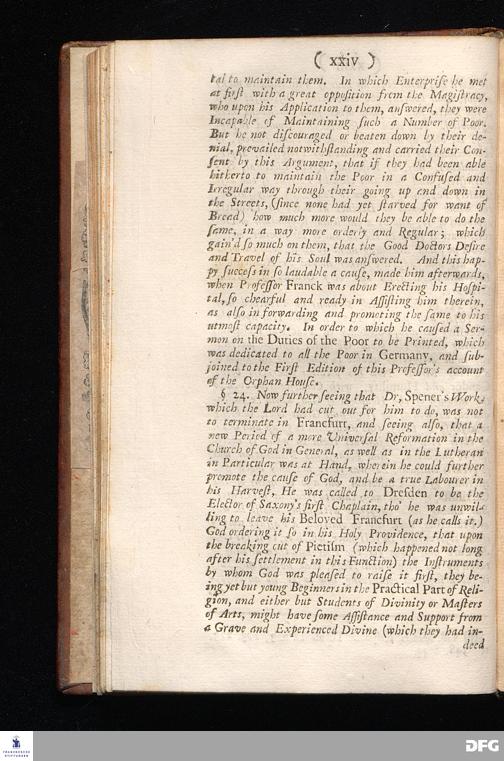 ( xxiv )
tal to maintain them. In which Enterpriſe he met
at firſt with a great oppoſition from the Magiſtracy,
who upon his Application to them, anſwered, they were
Incapable of Maintaining ſuch a Number of Poor.
But he not diſcouraged or beaten down by their de-
nial, prevailed notwithſtanding and carried their Con-
ſent by this Argument, that if they had been able
hitherto to maintain the Poor in a Confuſed and
Irregular way through their going up and down in
the Streets, (ſince none had yet ſtarved for want of
Bread) how much more would they be able to do the
ſame, in a way more orderly and Regular; which
gain'd ſo much on them, that the Good Doctors Deſire
and Travel of his Soul was anſwered. And this hap-
py ſucceſs in ſo laudable a cauſe, made him afterwards,
when Profeſſor Franck was about Erecting his Hoſpi-
tal, ſo chearful and ready in Aſſiſting him therein,
as alſo in forwarding and promoting the ſame to his
utmoſt capacity. In order to which he cauſed a Ser-
mon on the Duties of the Poor to be Printed, which
was dedicated to all the Poor in Germany, and ſub-
joined to the Firſt Edition of this Profeſſor's account
of the Orphan Houſe.
§ 24. Now further ſeeing that Dr, Spener's Work,
which the Lord had cut out for him to do, was not
to terminate in Francfurt, and ſeeing alſo, that a
new Period of a more Univerſal Reformation in the
Church of God in General, as well as in the Lutheran
in Particular was at Hand, wherein he could further
promote the cauſe of God, and be a true Labourer in
his Harveſt, He was called to Dreſden to be the
Elector of Saxony's firſt Chaplain, tho' he was unwil-
ling to leave his Beloved Francfurt (as he calls it,)
God ordering it ſo in his Holy Providence, that upon
the breaking out of Pietiſm (which happened not long
after his ſettlement in this Function) the Inſtruments
by whom God was pleaſed to raiſe it firſt, they be-
ing yet but young Beginners in the Practical Part of Reli-
gion, and either but Students of Divinity or Maſters
of Arts, might have ſome Aſſiſtance and Support from
a Grave and Experienced Divine (which they had in-
deed
FRANCKESCHE
STIFTUNGEN
DFG